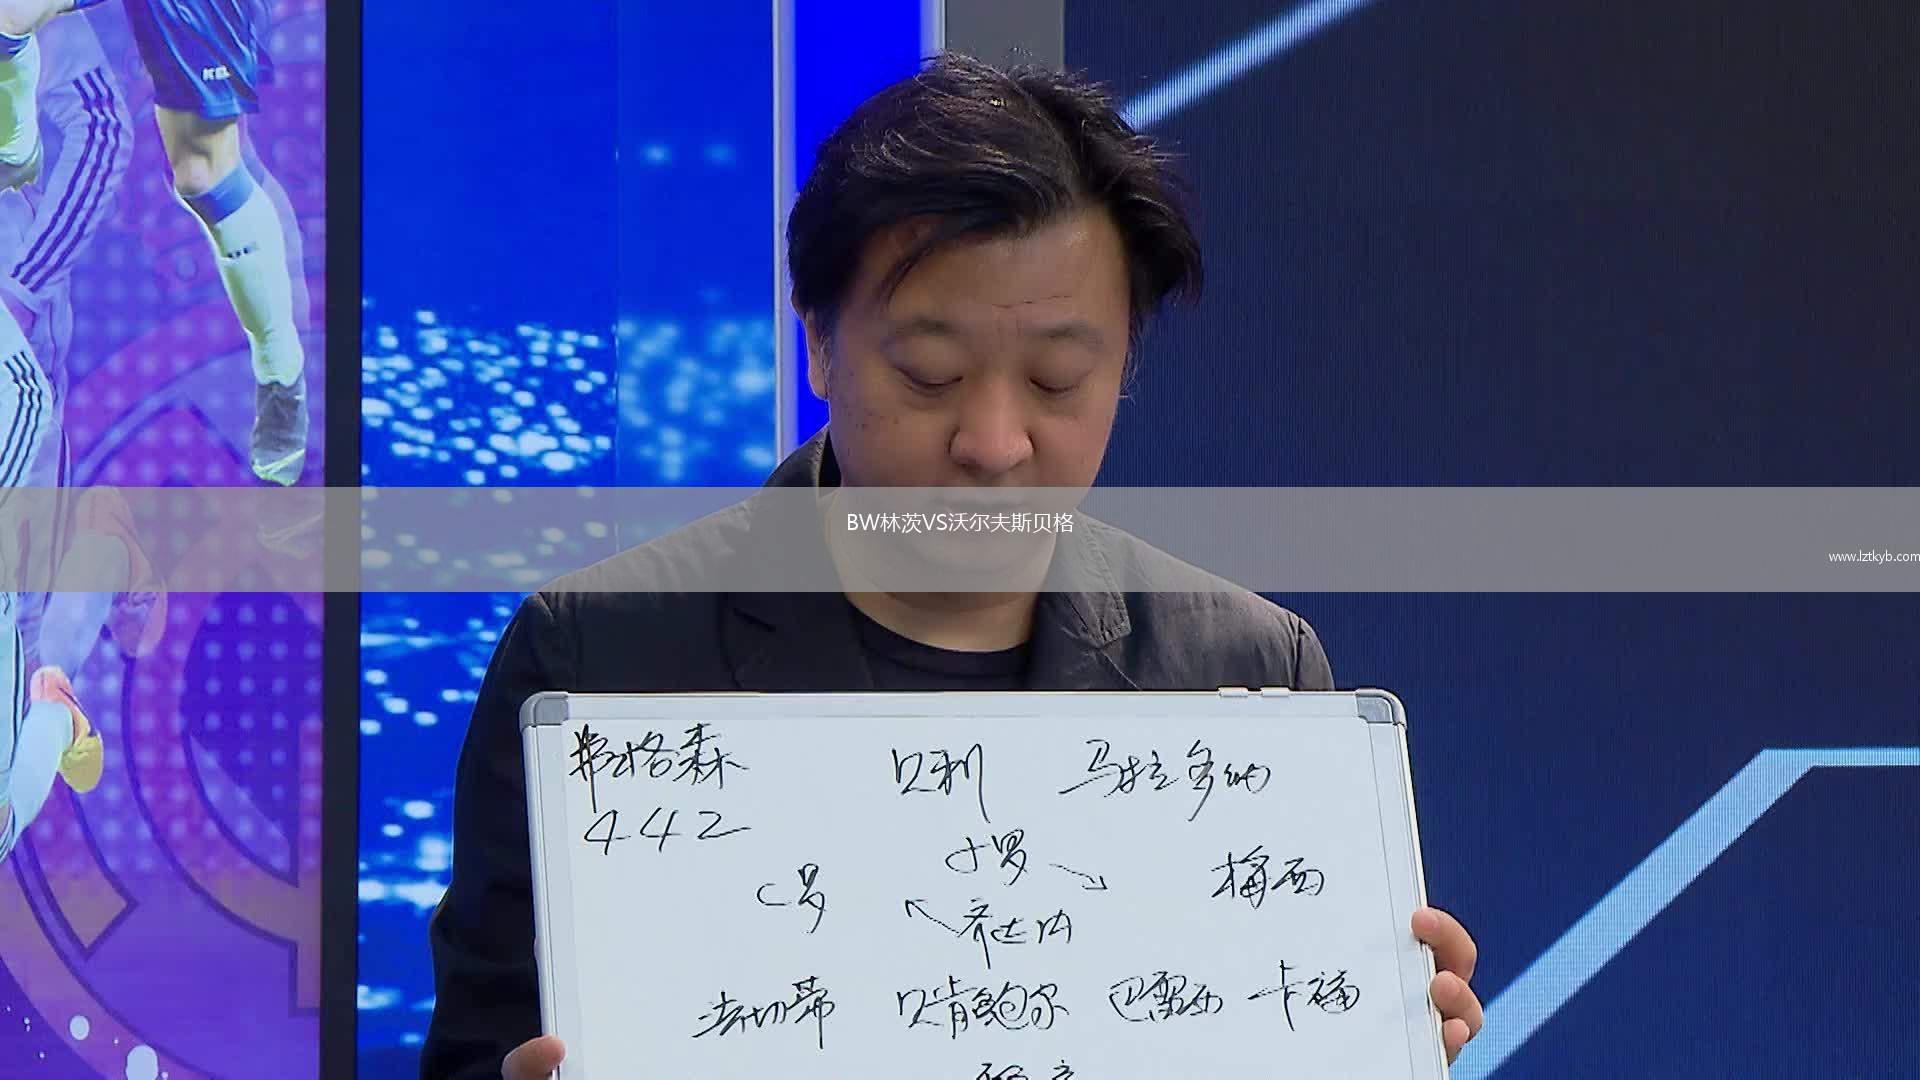 BW林茨VS沃尔夫斯贝格
www.lztkyb.com
弗格森 贝利 马拉多纳
442
小罗
C罗 梅西
齐达内
法切蒂 贝肯鲍尔 巴雷西 卡福